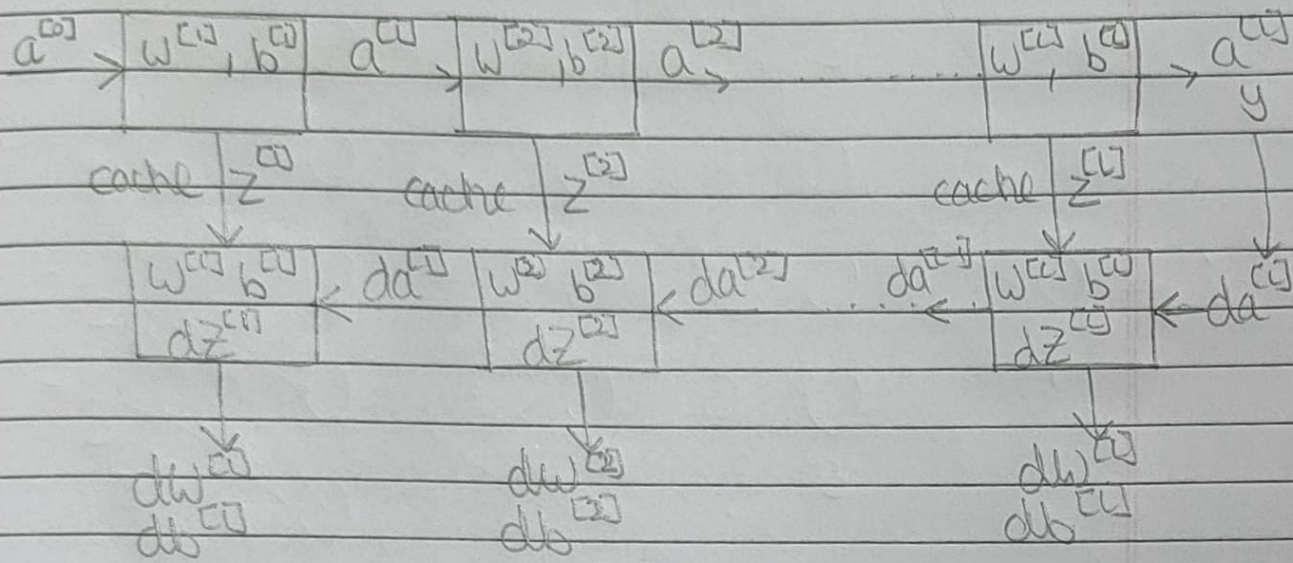 a^[0] → w^[1], b^[1] a^[1] → w^[2], b^[2] a^[2] → ........ w^[L], b^[L] → a^[L]
y
cache z^[1] cache z^[2] cache z^[L]
w^[1] b^[1] ← da^[1] w^[2] b^[2] ← da^[2] .... da^[L-1] ← w^[L] b^[L] ← da^[L]
dz^[1] dz^[2] dz^[L]
dw^[1] dw^[2] dw^[L]
db^[1] db^[2] db^[L]